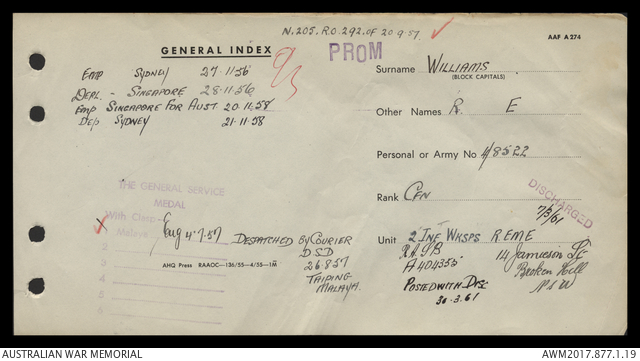 N.205. R.O.292. OF 20 9.57
GENERAL INDEX
PROM
AAF A274
Surname WILLIAMS
(BLOCK CAPITALS)
Emp SYDNEY 27.11.56
DEPL. - SINGAPORE 28.11.56
Emp SINGAPORE FOR AUST. 20.11.58
Dep SYDNEY 21.11.58
Other Names R. E
Personal or Army No 4/8522
Rank CFN
DISCHARGED
7/3/61
Unit 2 INF WKSPS REME
THE GENERAL SERVICE
MEDAL
With Clasp
Malaya
2
3
4
5
6
Eng 4.7.57 DESPATCHED BY COURIER
DSD
26.8.57
TAIPING
MALAYA.
AHQ Press RAAOC—136/55—4/55—1M
A404355
POSTED WITH DISC
30.3.61
14 Jamieson St
Broken Hill
NSW
AUSTRALIAN WAR MEMORIAL
AWM2017.877.1.19